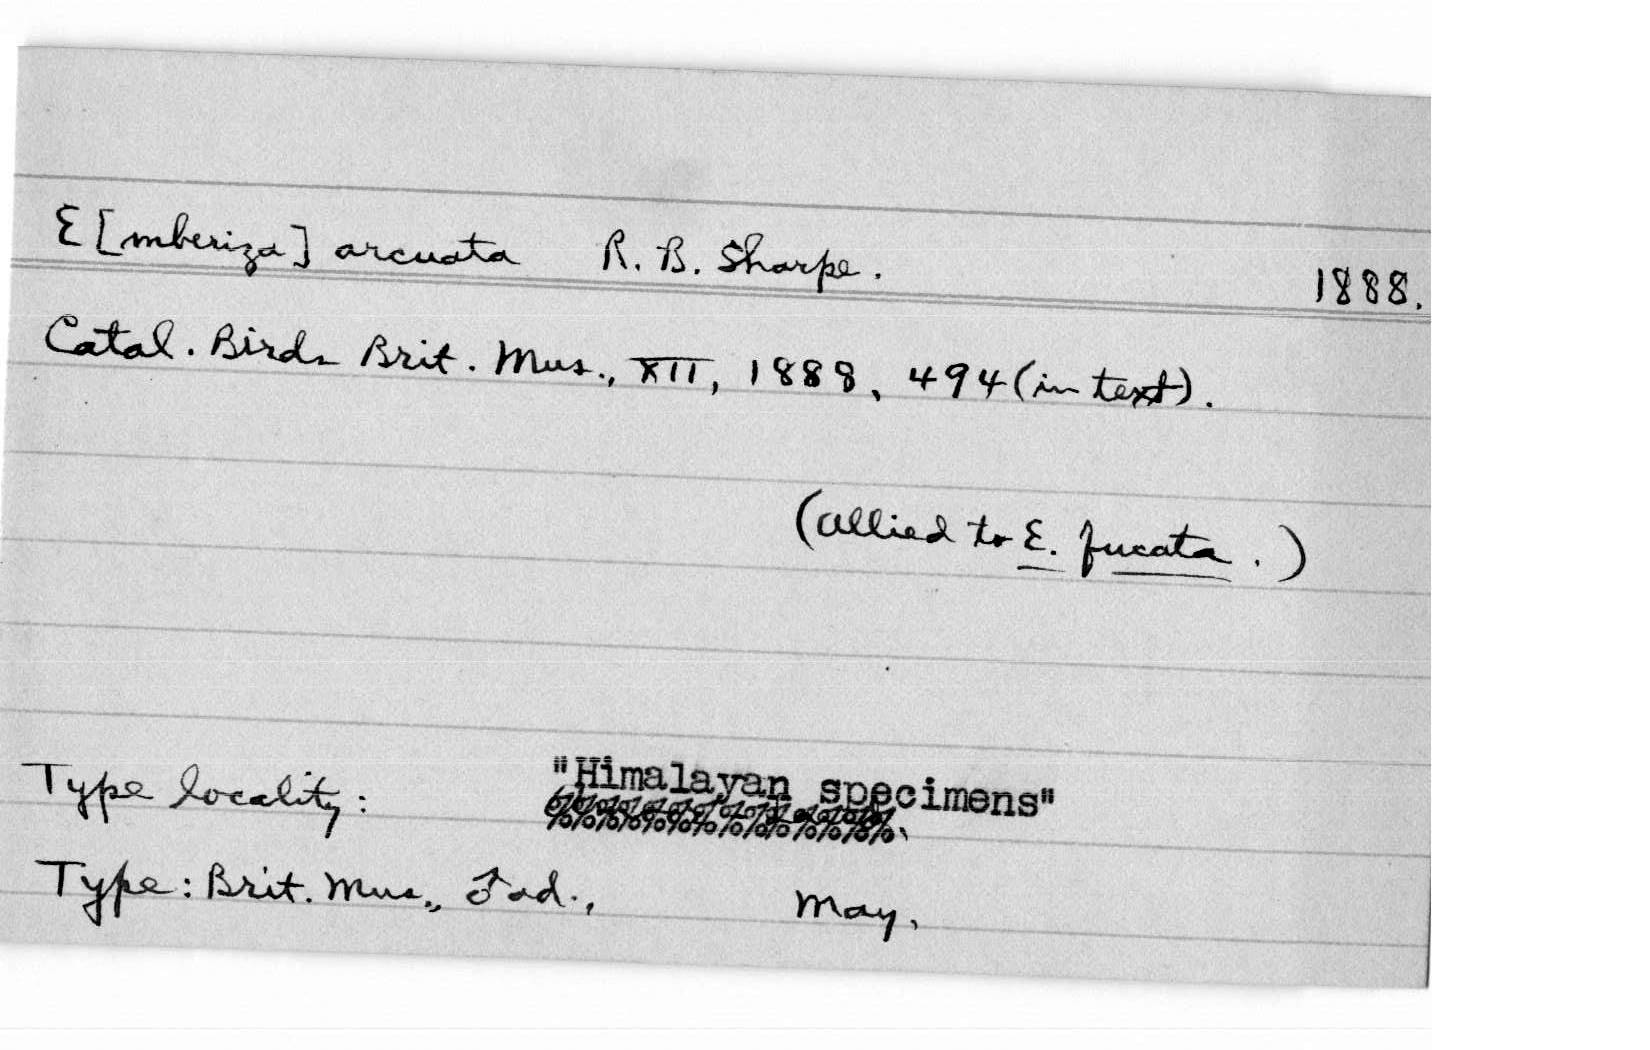 E[mberiza] arcuata R. B. Sharpe. 1888.
Catal. Birds Brit. Mus., XII, 1888, 494 (in text).
(allied to E. fucata.)
Type locality: "Himalayan specimens"
Type: Brit. Mus., ♂ ad., May,